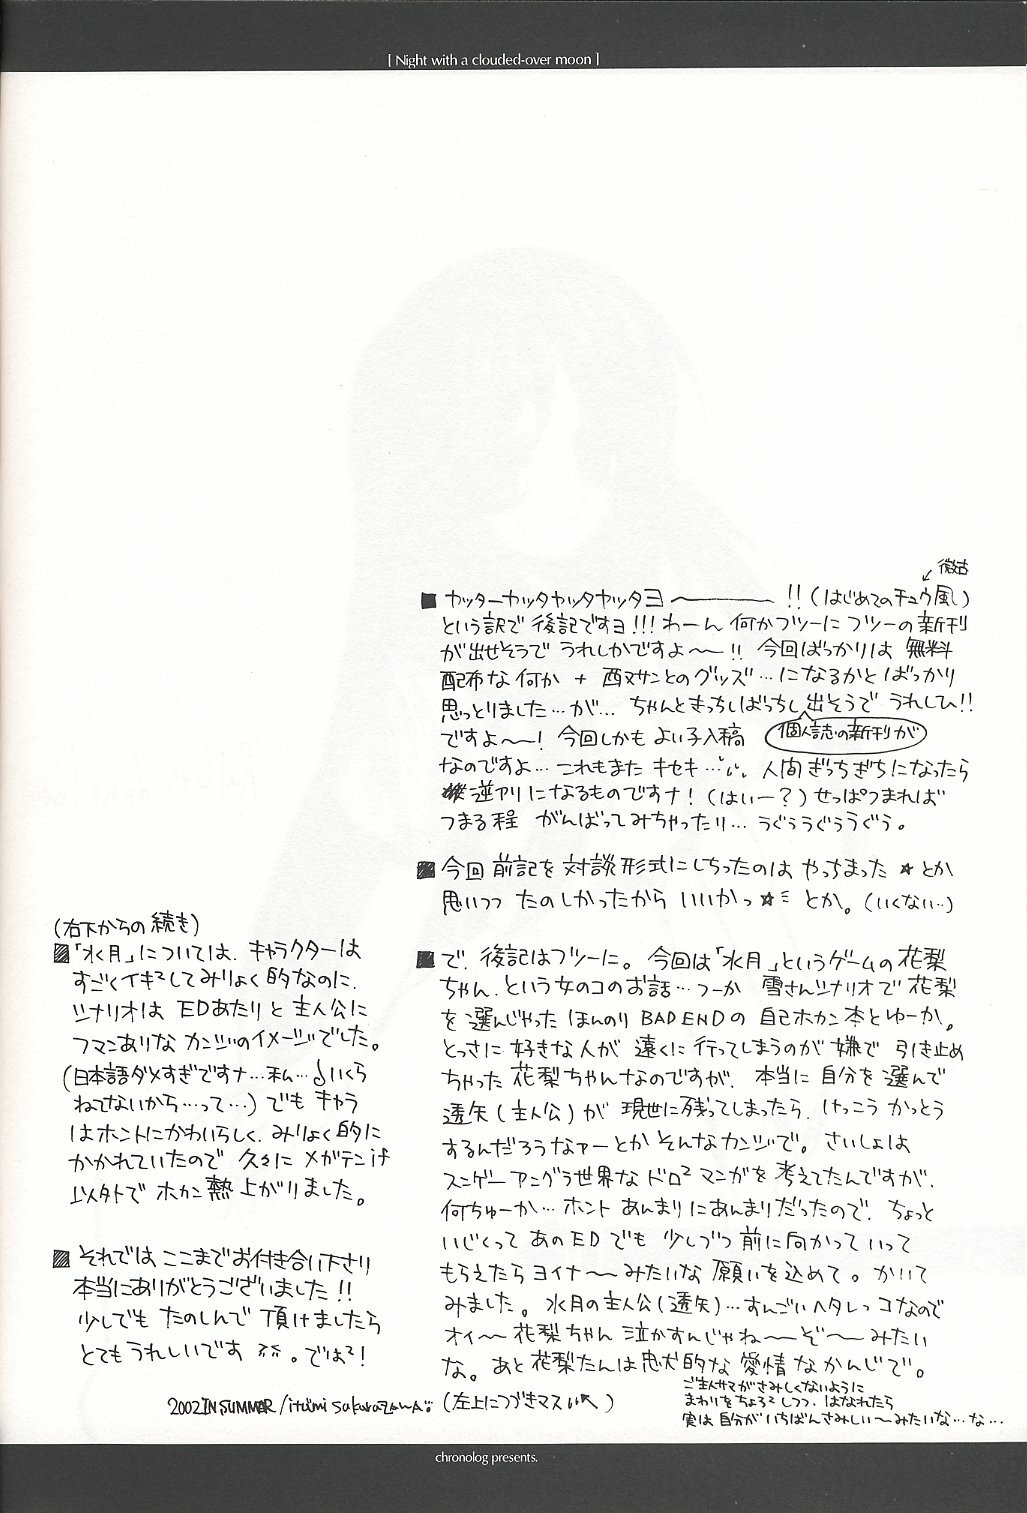 [ Night with a clouded-over moon ]
微古
■ ヤッターヤッタヤッタヤッタヨ〜〜!! (はじめてのチュウ風)
という訳で 後記ですヨ!!! わーん 何かフツーに フツーの新刊
が出せそうで うれしかですよ〜!! 今回ばっかりは 無料
配布な何か + 酉ヌサンとのグッズ…になるかとばっかり
思っとりました…が… ちゃんときっちしばっちし 出そうで うれしひ!!
個人誌の新刊が
ですよ〜! 今回しかも よい子入稿
なのですよ… これもまた キセキ… 人間ぎっちぎちになったら
逆アリになるものですナ! (はいー?) せっぱつまれば
つまる程 がんばってみちゃったり… うぐぅうぐぅうぐぅ。
■ 今回 前記を 対談形式にしちったのは やっちまった ☆ とか
思いつつ たのしかったから いいかっ☆ミ とか。(いくない…)
■ で、後記はフツーに。 今回は「水月」というゲームの 花梨
ちゃん、という女のコのお話… つーか 雪さんシナリオで 花梨
を 選んじゃった ほんのり BAD ENDの 自己ホカン本とゆーか。
とっさに 好きな人が 遠くに 行ってしまうのが 嫌で 引き止め
ちゃった 花梨ちゃんなのですが、本当に 自分を 選んで
透矢(主人公)が 現世に残ってしまったら、けっこう かっとう
するんだろうなァーとか そんなカンジで。 さいしょは
スンゲー アングラ世界な ドロ² マンガを 考えてたんですが、
何ちゅーか… ホント あんまりにあんまりだったので、ちょっと
いじくって あのED でも 少しづつ 前に向かって いって
もらえたら ヨイナ〜みたいな 願いを込めて。 かいて
みました。 水月の主人公(透矢)… すんごいヘタレっコなので
オイ〜 花梨ちゃん 泣かすんじゃね〜ぞ〜 みたい
な。 あと 花梨たんは 忠犬的な 愛情 なかんじで。
ご主人サマがさみしくないように
まわりをちょろ²しつつ、はなれたら
実は 自分が いちばんさみしい〜みたいな…な…
(左上につづきマス)
(右下からの 続き)
■「水月」については、キャラクターは
すごくイキ²してみりょく的なのに、
シナリオは EDあたりと 主人公に
フマンありな カンジのイメージでした。
(日本語ダメすぎですナ…私… いくら
ねてないから…って…) でも キャラ
はホントにかわいらしく、みりょく的に
かかれていたので 久々に メガテンif
以外で ホカン熱 上がりました。
■ それでは ここまでお付き合い下さり
本当にありがとうございました!!
少しでも たのしんで 頂けましたら
とても うれしいです。では²!
2002 IN SUMMER / itsumi sakurazawa
chronolog presents.